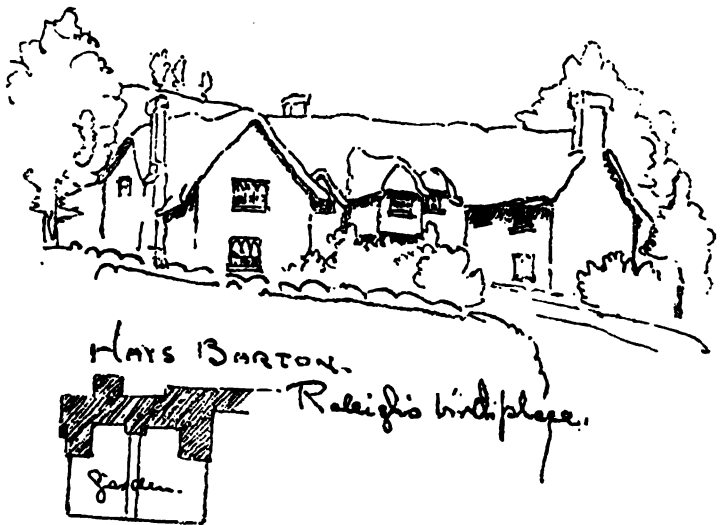 HAYS BARTON.
Raleigh's birthplace.
garden.